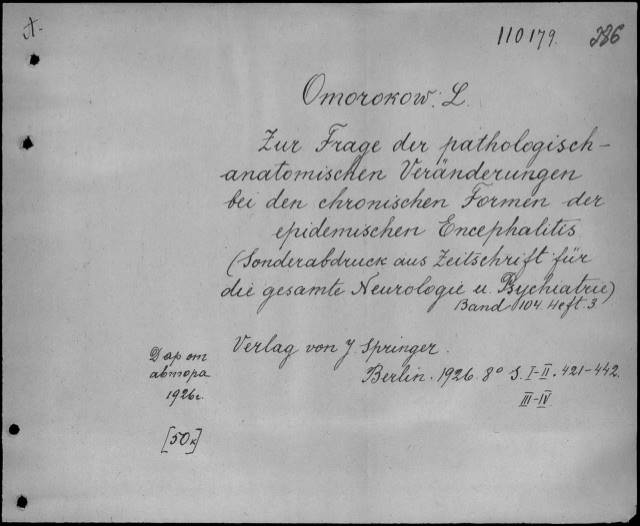 А.
110179. 386
Omorokow. L.
Zur Frage der pathologisch-
anatomischen Veränderungen
bei den chronischen Formen der
epidemischen Encephalitis
(Sonderabdruck aus Zeitschrift für
die gesamte Neurologie u. Psychiatrie)
Band 104. Heft. 3.
Verlag von J Springer.
Berlin. 1926. 8° S. I-II. 421-442
III-IV
Дар от
автора
1926г.
[50к]